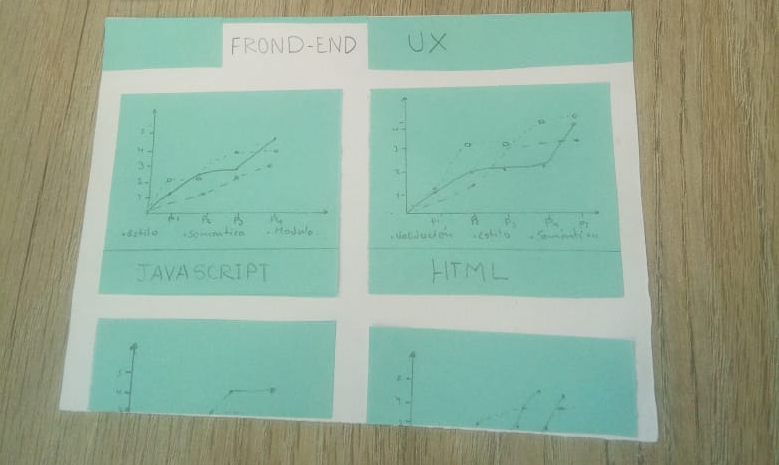 FROND-END UX
5
4
3
2
1
P1 P2 P3 P4
• Estilo • Semantica • Modulo
JAVASCRIPT
4
3
2
1
P1 P2 P3 P4 P5
• Validación • Estilo • Semántica
HTML
5
4